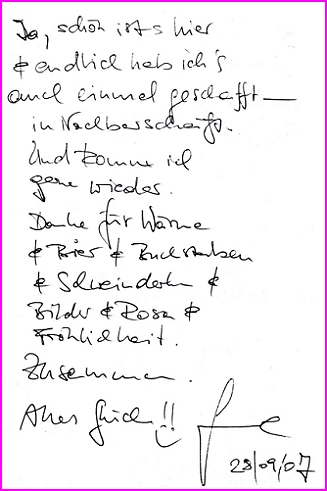 Ja, schön ist's hier
& endlich hab ich's
auch einmal geschafft —
in Nachbarschaft.
Und komme ich
gerne wieder.
Danke für Wärme
& Bier & Buchstaben
& Schweinderln &
Bilder & Rosa &
Fröhlichkeit.
Zusammen.
Alles Glück!!
28/09/07